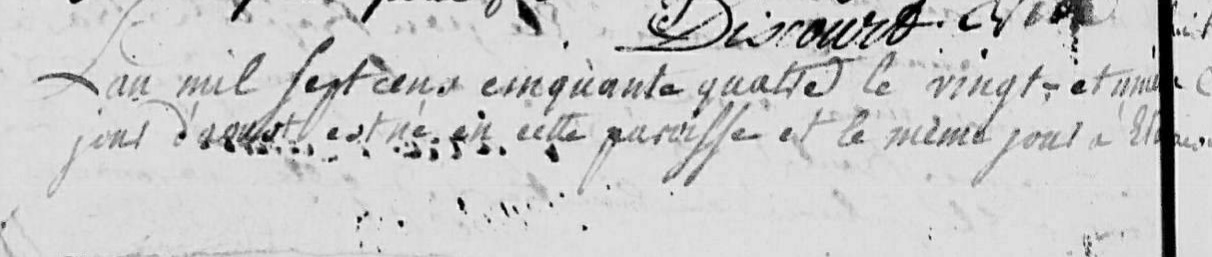 Discourt.
Lan mil sept cens cinquante quatre le vingt-et unie
jour d'aoust est né en cette paroisse et le même jour a